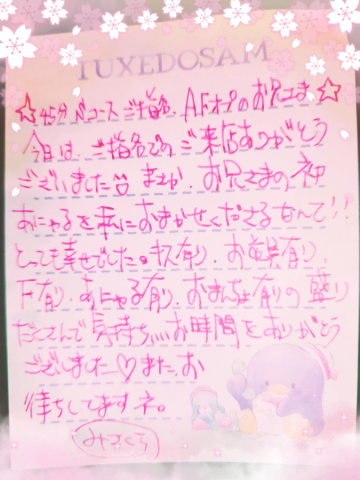 TUXEDOSAM
☆45分Nコースご指名、AFオプのお兄さま☆
今日は、ご指名でのご来店ありがとう
ございました。まさか、お兄さまの初
あにゃるを私におまかせくださるなんて!!
とっても幸せでした。キス有り、お道具有り、
下有り、あにゃる有り、おまんちょ有りの盛り
だくさんで気持ち...お時間をありがとう
ございました♡また、お
待ちしてますネ。
みさくら